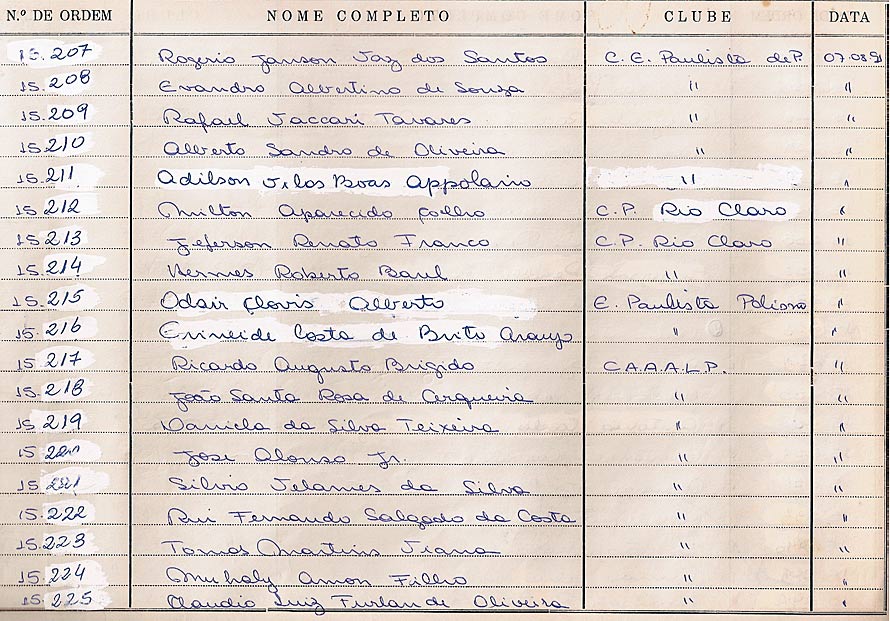 N.º DE ORDEM NOME COMPLETO CLUBE DATA
15.207 Rogerio Janson Vaz dos Santos C. E. Paulista de P. 07.08.91
15.208 Evandro Albertino de Souza " "
15.209 Rafael Vaccari Tavares " "
15.210 Alberto Sandro de Oliveira " "
15.211 Adilson Vilas Boas Appolario " "
15.212 Milton Aparecido Coelho C.P. Rio Claro "
15.213 Jeferson Renato Franco C.P. Rio Claro "
15.214 Hermes Roberto Baul " "
15.215 Odair Clovis Alberto E. Paulista "
15.216 Erineide Costa de Brito Araujo " "
15.217 Ricardo Augusto Brigido C.A.A.A.L.P. "
15.218 João Santa Rosa de Cerqueira " "
15.219 Daniela da Silva Teixeira " "
15 José Alonso Jr. " "
15 221 Silvio da Silva " "
15.222 Rui Fernando Salgado da Costa " "
15.223 Tomas Martins Viana " "
15.224 Amon Filho " "
15.225 Claudio Luiz Furlan de Oliveira " "